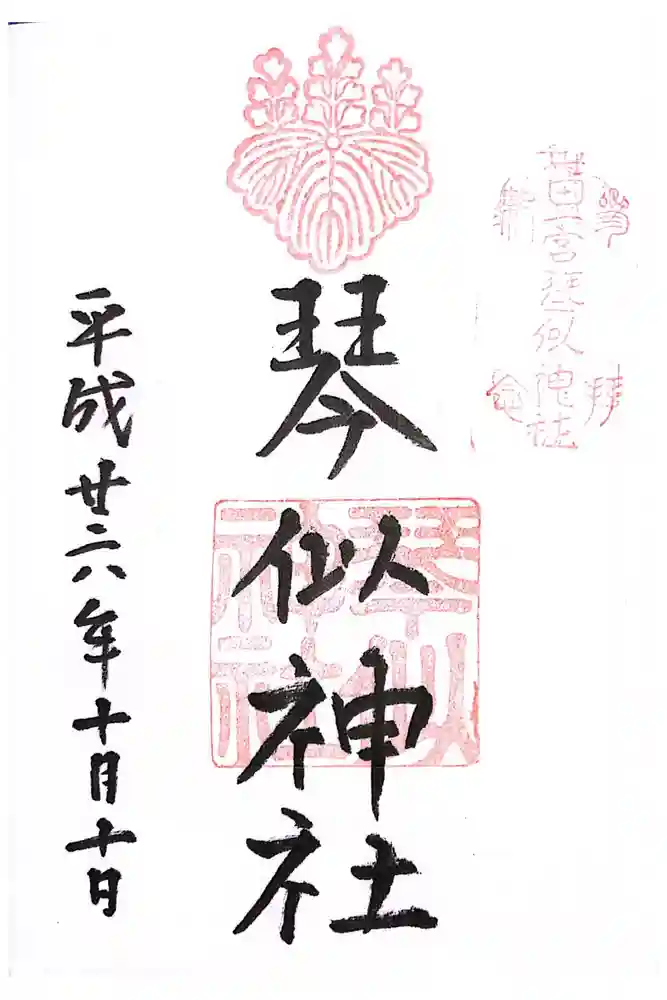 一宮琴似神社
琴似神社
琴似神社
平成廿六年十月十日